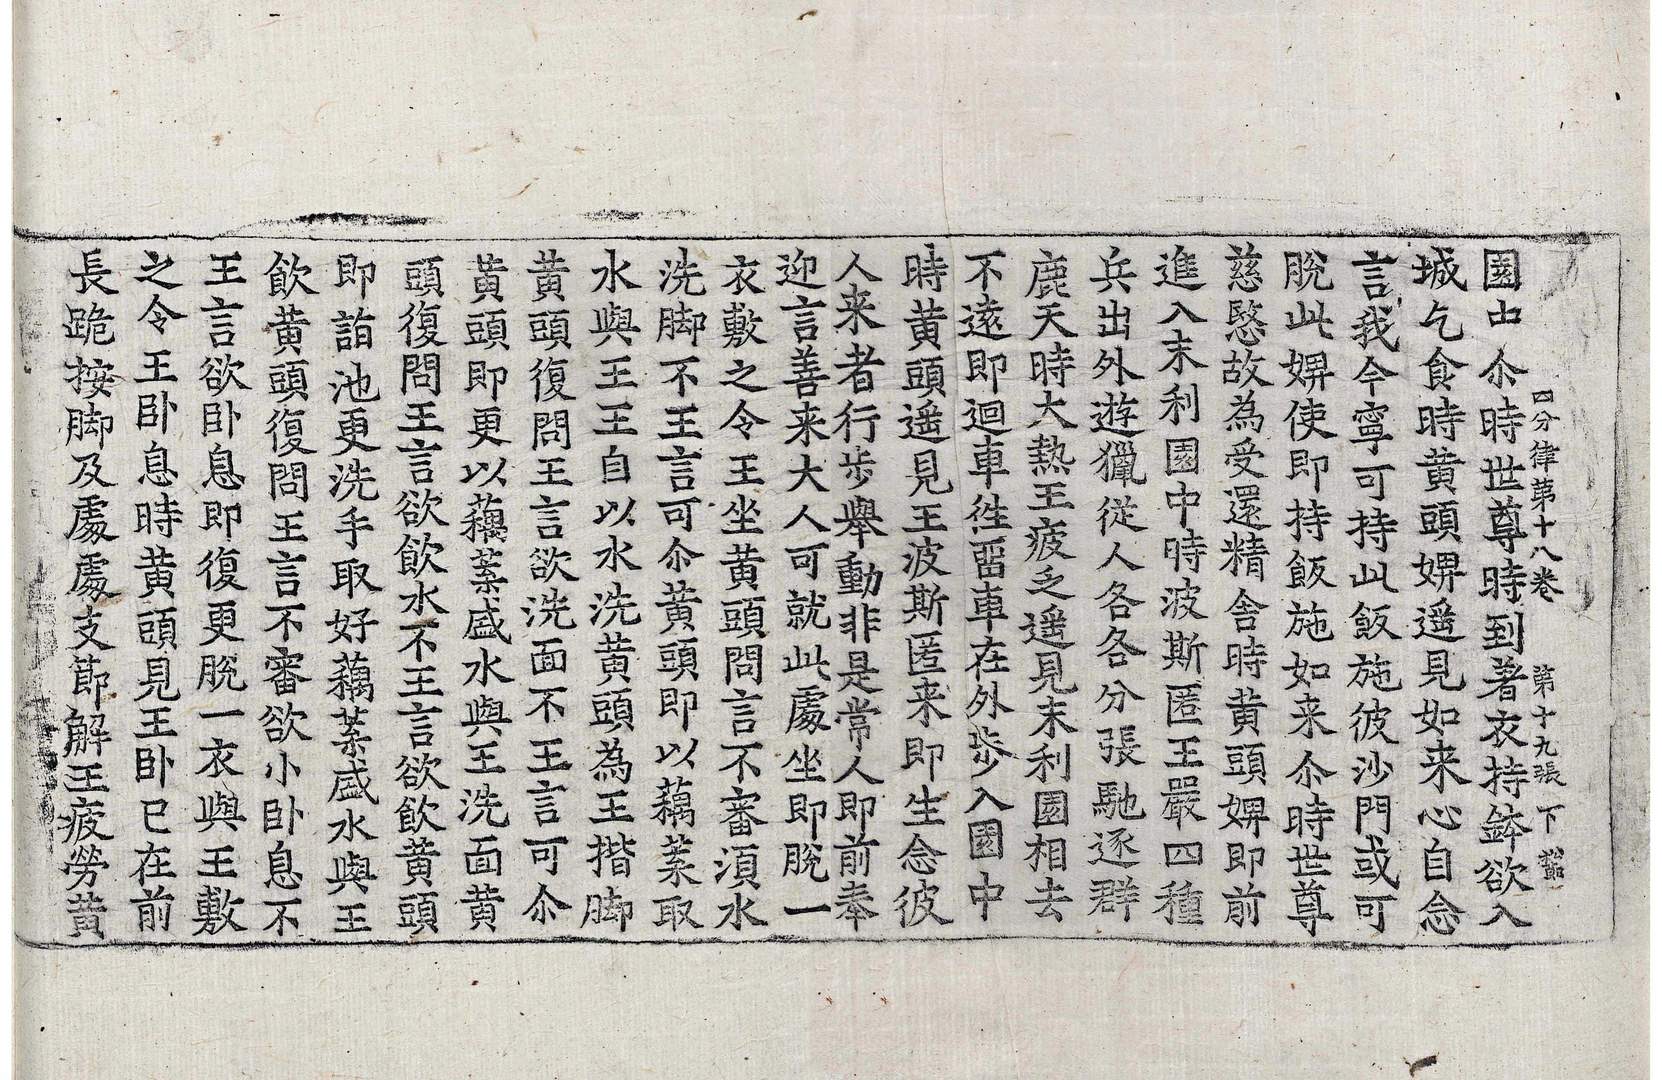 四分律第十八卷 第十九張 下
園中尒時世尊時到著衣持鉢欲入
城乞食時黃頭婢遥見如来心自念
言我今寧可持此飯施彼沙門或可
脫此婢使即持飯施如来尒時世尊
慈愍故為受還精舍時黃頭婢即前
進入末利園中時波斯匿王嚴四種
兵出外遊獵従人各各分張馳逐群
鹿天時大熱王疲乏遥見末利園相去
不遠即迴車徃畱車在外步入園中
時黃頭遥見王波斯匿来即生念彼
人来者行步舉動非是常人即前奉
迎言善来大人可就此處坐即脫一
衣敷之令王坐黃頭問言不審湏水
洗脚不王言可尒黃頭即以藕葉取
水與王王自以水洗黃頭為王揩脚
黃頭復問王言欲洗面不王言可尒
黃頭即更以藕葉盛水與王洗面黃
頭復問王言欲飲水不王言欲飲黃頭
即詣池更洗手取好藕葉盛水與王
飲黃頭復問王言不審欲小卧息不
王言欲卧息即復更脫一衣與王敷
之令王卧息時黃頭見王卧已在前
長跪按脚及處處支節解王疲勞黃